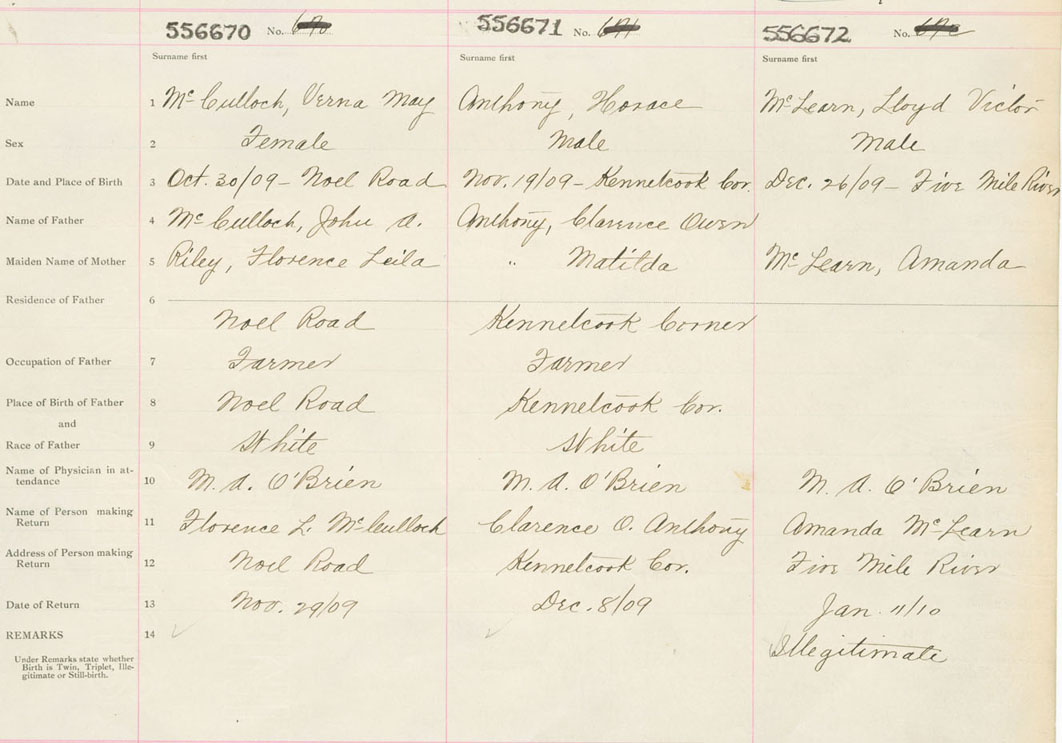 556670 No. 556671 No. 556672 No.
Surname first Surname first Surname first
Name 1 McCulloch, Verna May Anthony, Horace McLearn, Lloyd Victor
Sex 2 Female Male Male
Date and Place of Birth 3 Oct. 30/09 - Noel Road Nov. 19/09 - Kennetcook Cor. Dec. 26/09 - Five Mile River
Name of Father 4 McCulloch, John A. Anthony, Clarence Owen
Maiden Name of Mother 5 Riley, Florence Leila " Matilda McLearn, Amanda
Residence of Father 6
Noel Road Kennetcook Corner
Occupation of Father 7 Farmer Farmer
Place of Birth of Father 8 Noel Road Kennetcook Cor.
and
Race of Father 9 White White
Name of Physician in at-
tendance 10 M. A. O'Brien M. A. O'Brien M. A. O'Brien
Name of Person making
Return 11 Florence L. McCulloch Clarence O. Anthony Amanda McLearn
Address of Person making
Return 12 Noel Road Kennetcook Cor. Five Mile River
Date of Return 13 Nov. 29/09 Dec. 8/09 Jan. 11/10
REMARKS 14 Illegitimate
Under Remarks state whether
Birth is Twin, Triplet, Ille-
gitimate or Still-birth.